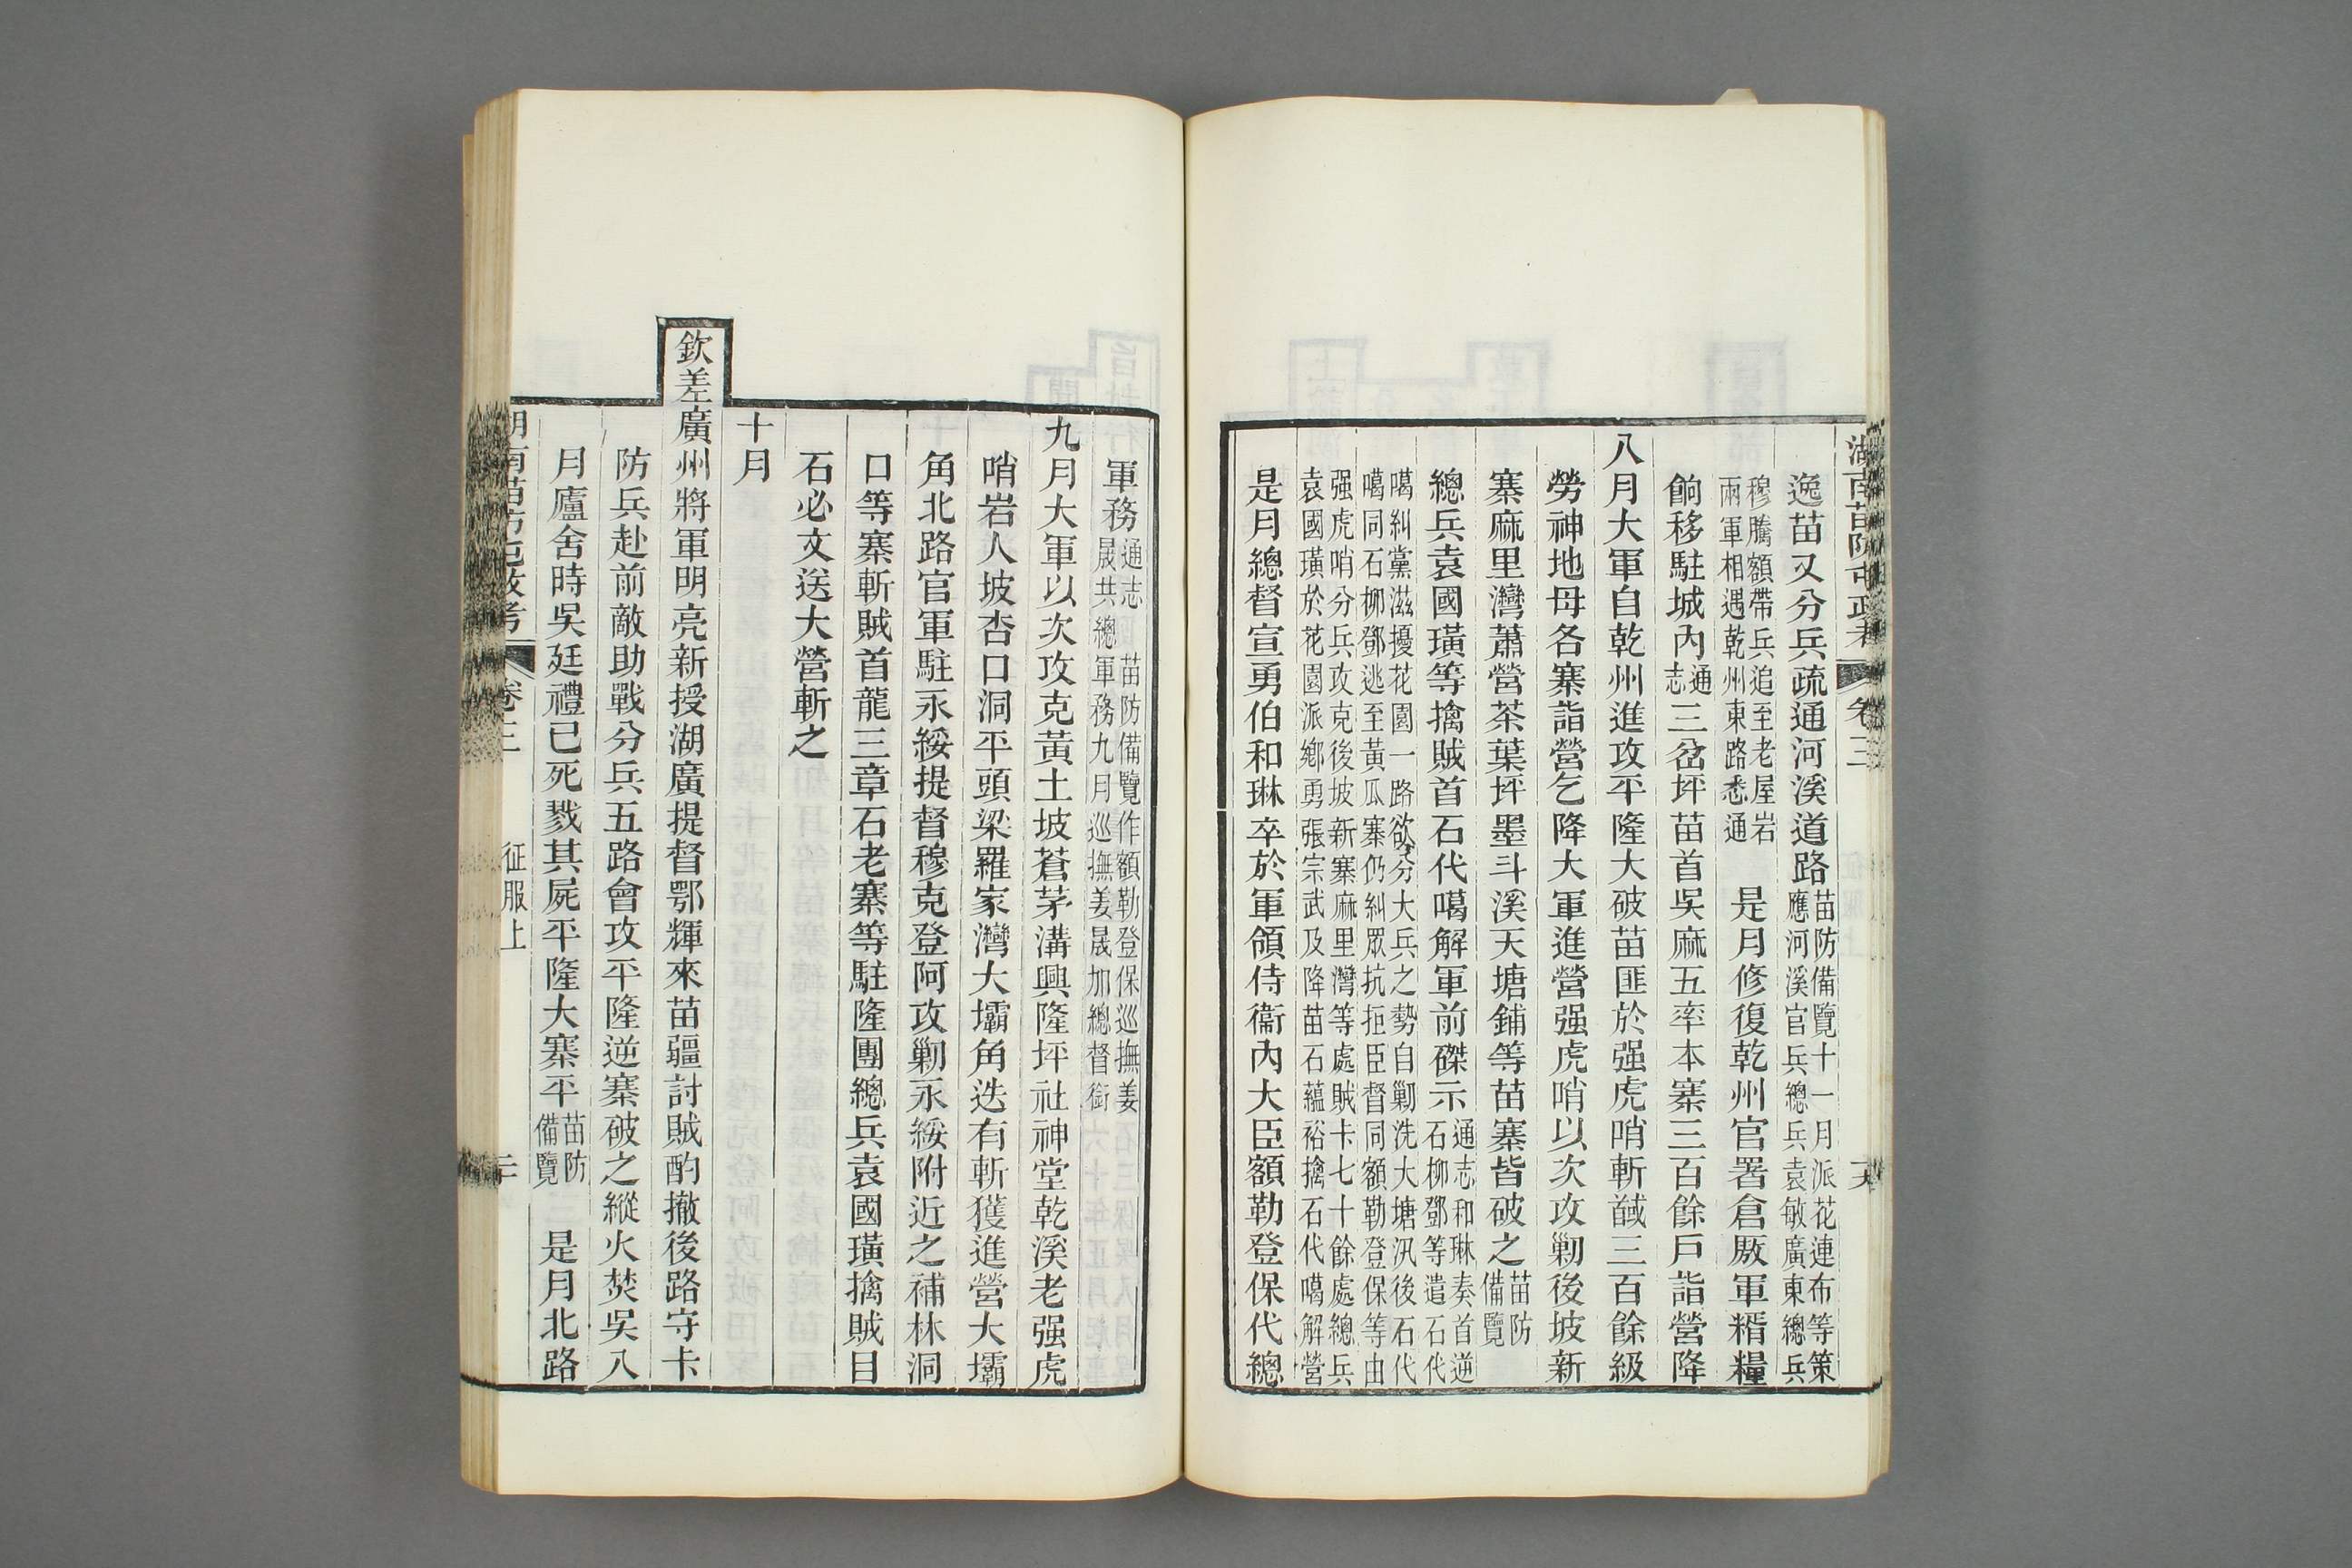 湖南苗防屯政考 卷三
逸苗又分兵疏通河溪道路苗防備覽十一月派花連布等策
應河溪官兵總兵袁敏廣東總兵
穆騰額帶兵追至老屋岩
兩軍相遇乾州東路悉通 是月修復乾州官署倉厫軍糈糧
餉移駐城內通志 三岔坪苗首吳麻五率本寨三百餘戶詣營降
八月大軍自乾州進攻平隆大破苗匪於强虎哨斬馘三百餘級
勞神地母各寨詣營乞降大軍進營强虎哨以次攻剿後坡新
寨麻里灣蕭營茶葉坪墨斗溪天塘鋪等苗寨皆破之苗防備覽
總兵袁國璜等擒賊首石代噶解軍前磔示通志和琳奏首逆
石柳鄧等遣石代
噶糾黨滋擾花園一路欲分大兵之勢自剿洗大塘汛後石代
噶同石柳鄧逃至黃瓜寨仍糾眾抗拒臣督同額勒登保等由
强虎哨分兵攻克後坡新寨麻里灣等處賊卡七十餘處總兵
袁國璜於花園派鄉勇張宗武及降苗石蘊裕擒石代噶解營
是月總督宣勇伯和琳卒於軍領侍衞內大臣額勒登保代總
軍務通志 苗防備覽作額勒登保巡撫姜
晟共總軍務九月巡撫姜晟加總督銜
九月大軍以次攻克黃土坡蒼茅溝興隆坪社神堂乾溪老强虎
哨岩人坡杏口洞平頭梁羅家灣大壩角迭有斬獲進營大壩
角北路官軍駐永綏提督穆克登阿攻剿永綏附近之補林洞
口等寨斬賊首龍三章石老寨等駐隆團總兵袁國璜擒賊目
石必文送大營斬之
十月
欽差廣州將軍明亮新授湖廣提督鄂輝來苗疆討賊酌撤後路守卡
防兵赴前敵助戰分兵五路會攻平隆逆寨破之縱火焚吳八
月廬舍時吳廷禮已死戮其屍平隆大寨平苗防備覽 是月北路
湖南苗防屯政考 卷三 征服上